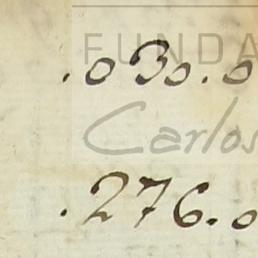 FUNDA
.030.0
Carlos
.276.0